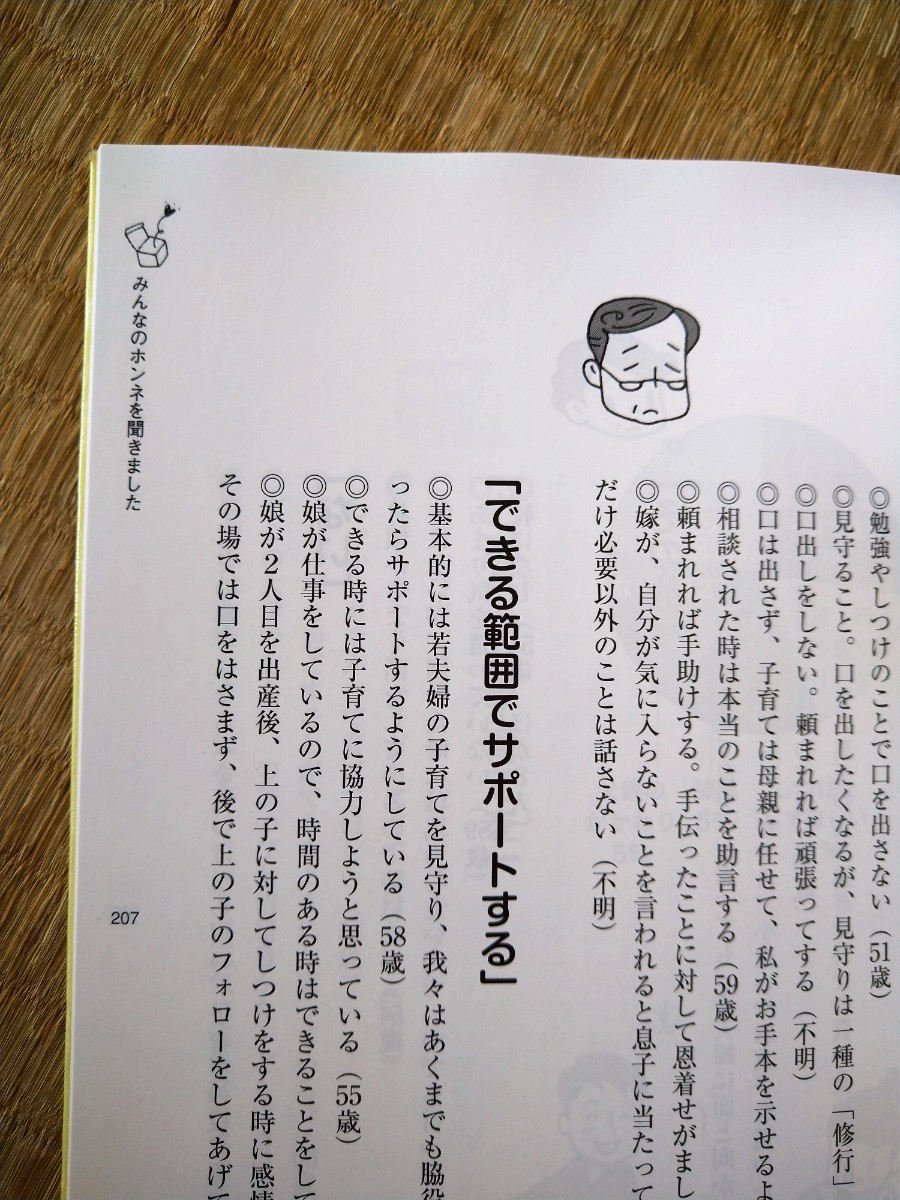 ◎勉強やしつけのことで口を出さない（51歳）
◎見守ること。口を出したくなるが、見守りは一種の「修行」
◎口出しをしない。頼まれれば頑張ってする（不明）
◎口は出さず、子育ては母親に任せて、私がお手本を示せるよ
◎相談された時は本当のことを助言する（59歳）
◎頼まれれば手助けする。手伝ったことに対して恩着せがまし
◎嫁が、自分が気に入らないことを言われると息子に当たって
だけ必要以外のことは話さない（不明）
「できる範囲でサポートする」
◎基本的には若夫婦の子育てを見守り、我々はあくまでも脇役
ったらサポートするようにしている（58歳）
◎できる時には子育てに協力しようと思っている（55歳）
◎娘が仕事をしているので、時間のある時はできることをして
◎娘が２人目を出産後、上の子に対してしつけをする時に感情
その場では口をはさまず、後で上の子のフォローをしてあげて
みんなのホンネを聞きました
207